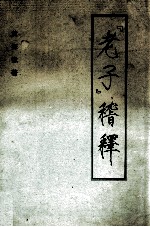 《老子》稽釋